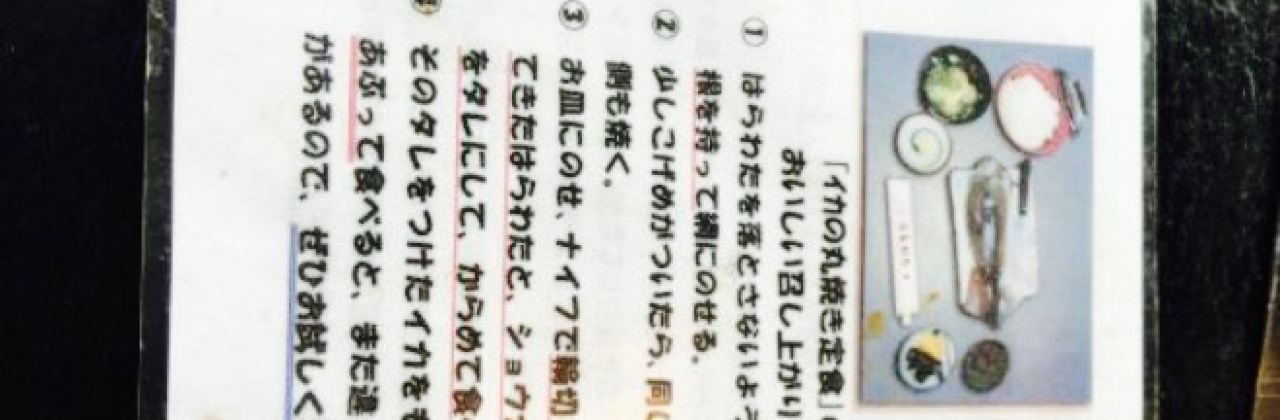 「イカの丸焼き定食」
おいしい召し上がり
① はらわたを落とさないよう
根を持って網にのせる。
② 少しこげめがついたら、同じ
側も焼く。
③ お皿にのせ、ナイフで輪切
てきたはらわたと、ショウ
をタレにして、からめて食
そのタレをつけたイカをも
あぶって食べると、また違
があるので、ぜひお試しく